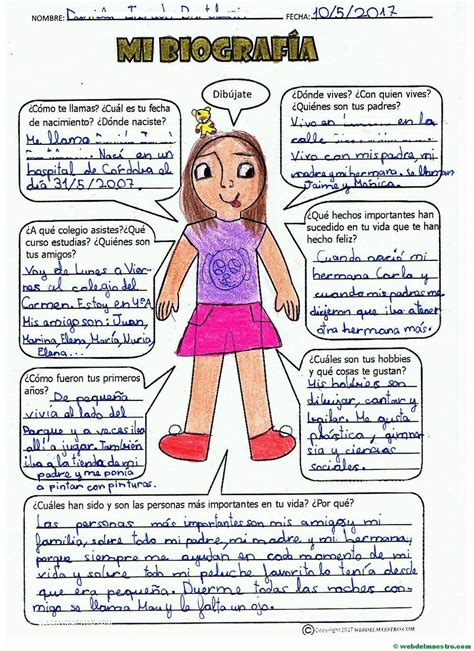 NOMBRE: FECHA: 10/5/2017
MI BIOGRAFÍA
Dibújate
¿Cómo te llamas? ¿Cuál es tu fecha
de nacimiento? ¿Dónde naciste?
Me llamo
Nací en un
hospital de Córdoba el
día 31/5/2007.
¿Dónde vives? ¿Con quien vives?
¿Quiénes son tus padres?
Vivo en en la
calle
Vivo con mis padre, mi
madre y mi hermana. se llaman
Jaime y Mónica.
¿A qué colegio asistes? ¿Qué
curso estudias? ¿Quiénes son
tus amigos?
Voy de Lunes a Vier-
nes al colegio del
Carmen. Estoy en 4ºA
Mis amigo son: Juan,
Marina, Elena, María, Nuria,
Elena...
¿Qué hechos importantes han
sucedido en tu vida que te han
hecho feliz?
Cuando nació mi
hermana Carla y
cuando mis padres me
dijeron que iba a tener
otra hermana más.
¿Cómo fueron tus primeros
años?
De pequeña
vivía al lado del
Parque y a veces iba
allí a jugar. También
iba a la tienda de mi
padre y me ponía
a pintar con pinturas.
¿Cuáles son tus hobbies
y qué cosas te gustan?
Mis hobbies son
dibujar, cantar y
bailar. Me gusta
plástica, gimna-
sia y ciencias
sociales.
¿Cuáles han sido y son las personas más importantes en tu vida? ¿Por qué?
Las personas más importantes son mis amigos y mi
familia, sobre todo mi padre, mi madre y mi hermana,
porque siempre me ayudan en cada momento de mi
vida y sobre todo mi peluche favorito lo tenía desde
que era pequeña. Duerme todas las noches con-
migo se llama Mau y le falta un ojo.
©Copyright 2017 WEBDELMAESTRO.COM
© webdelmaestro.com